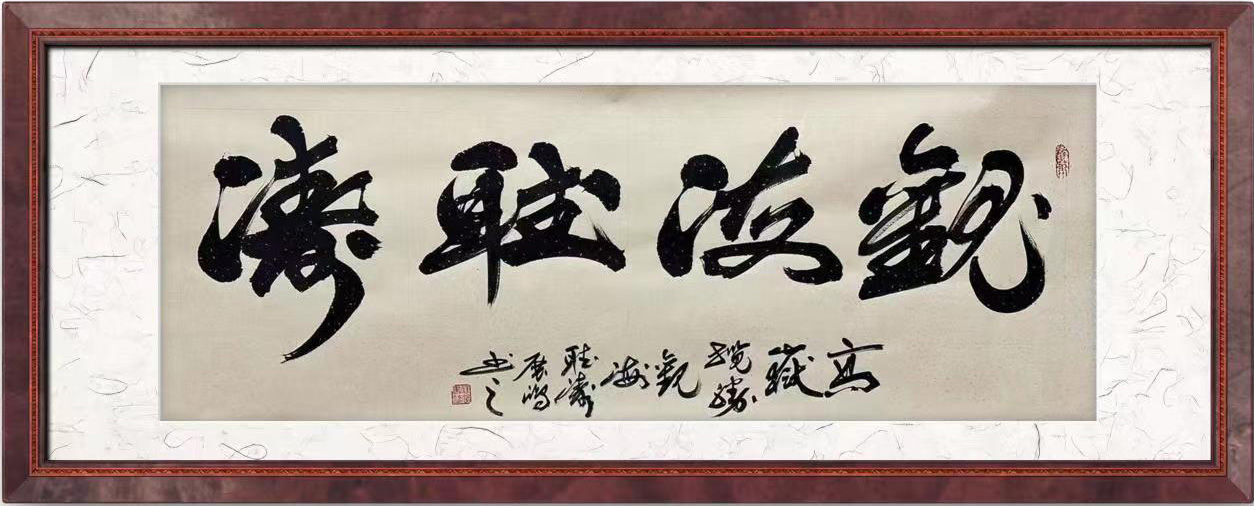 觀海聽濤
高嶽攬勝觀海聽濤展鴻書之